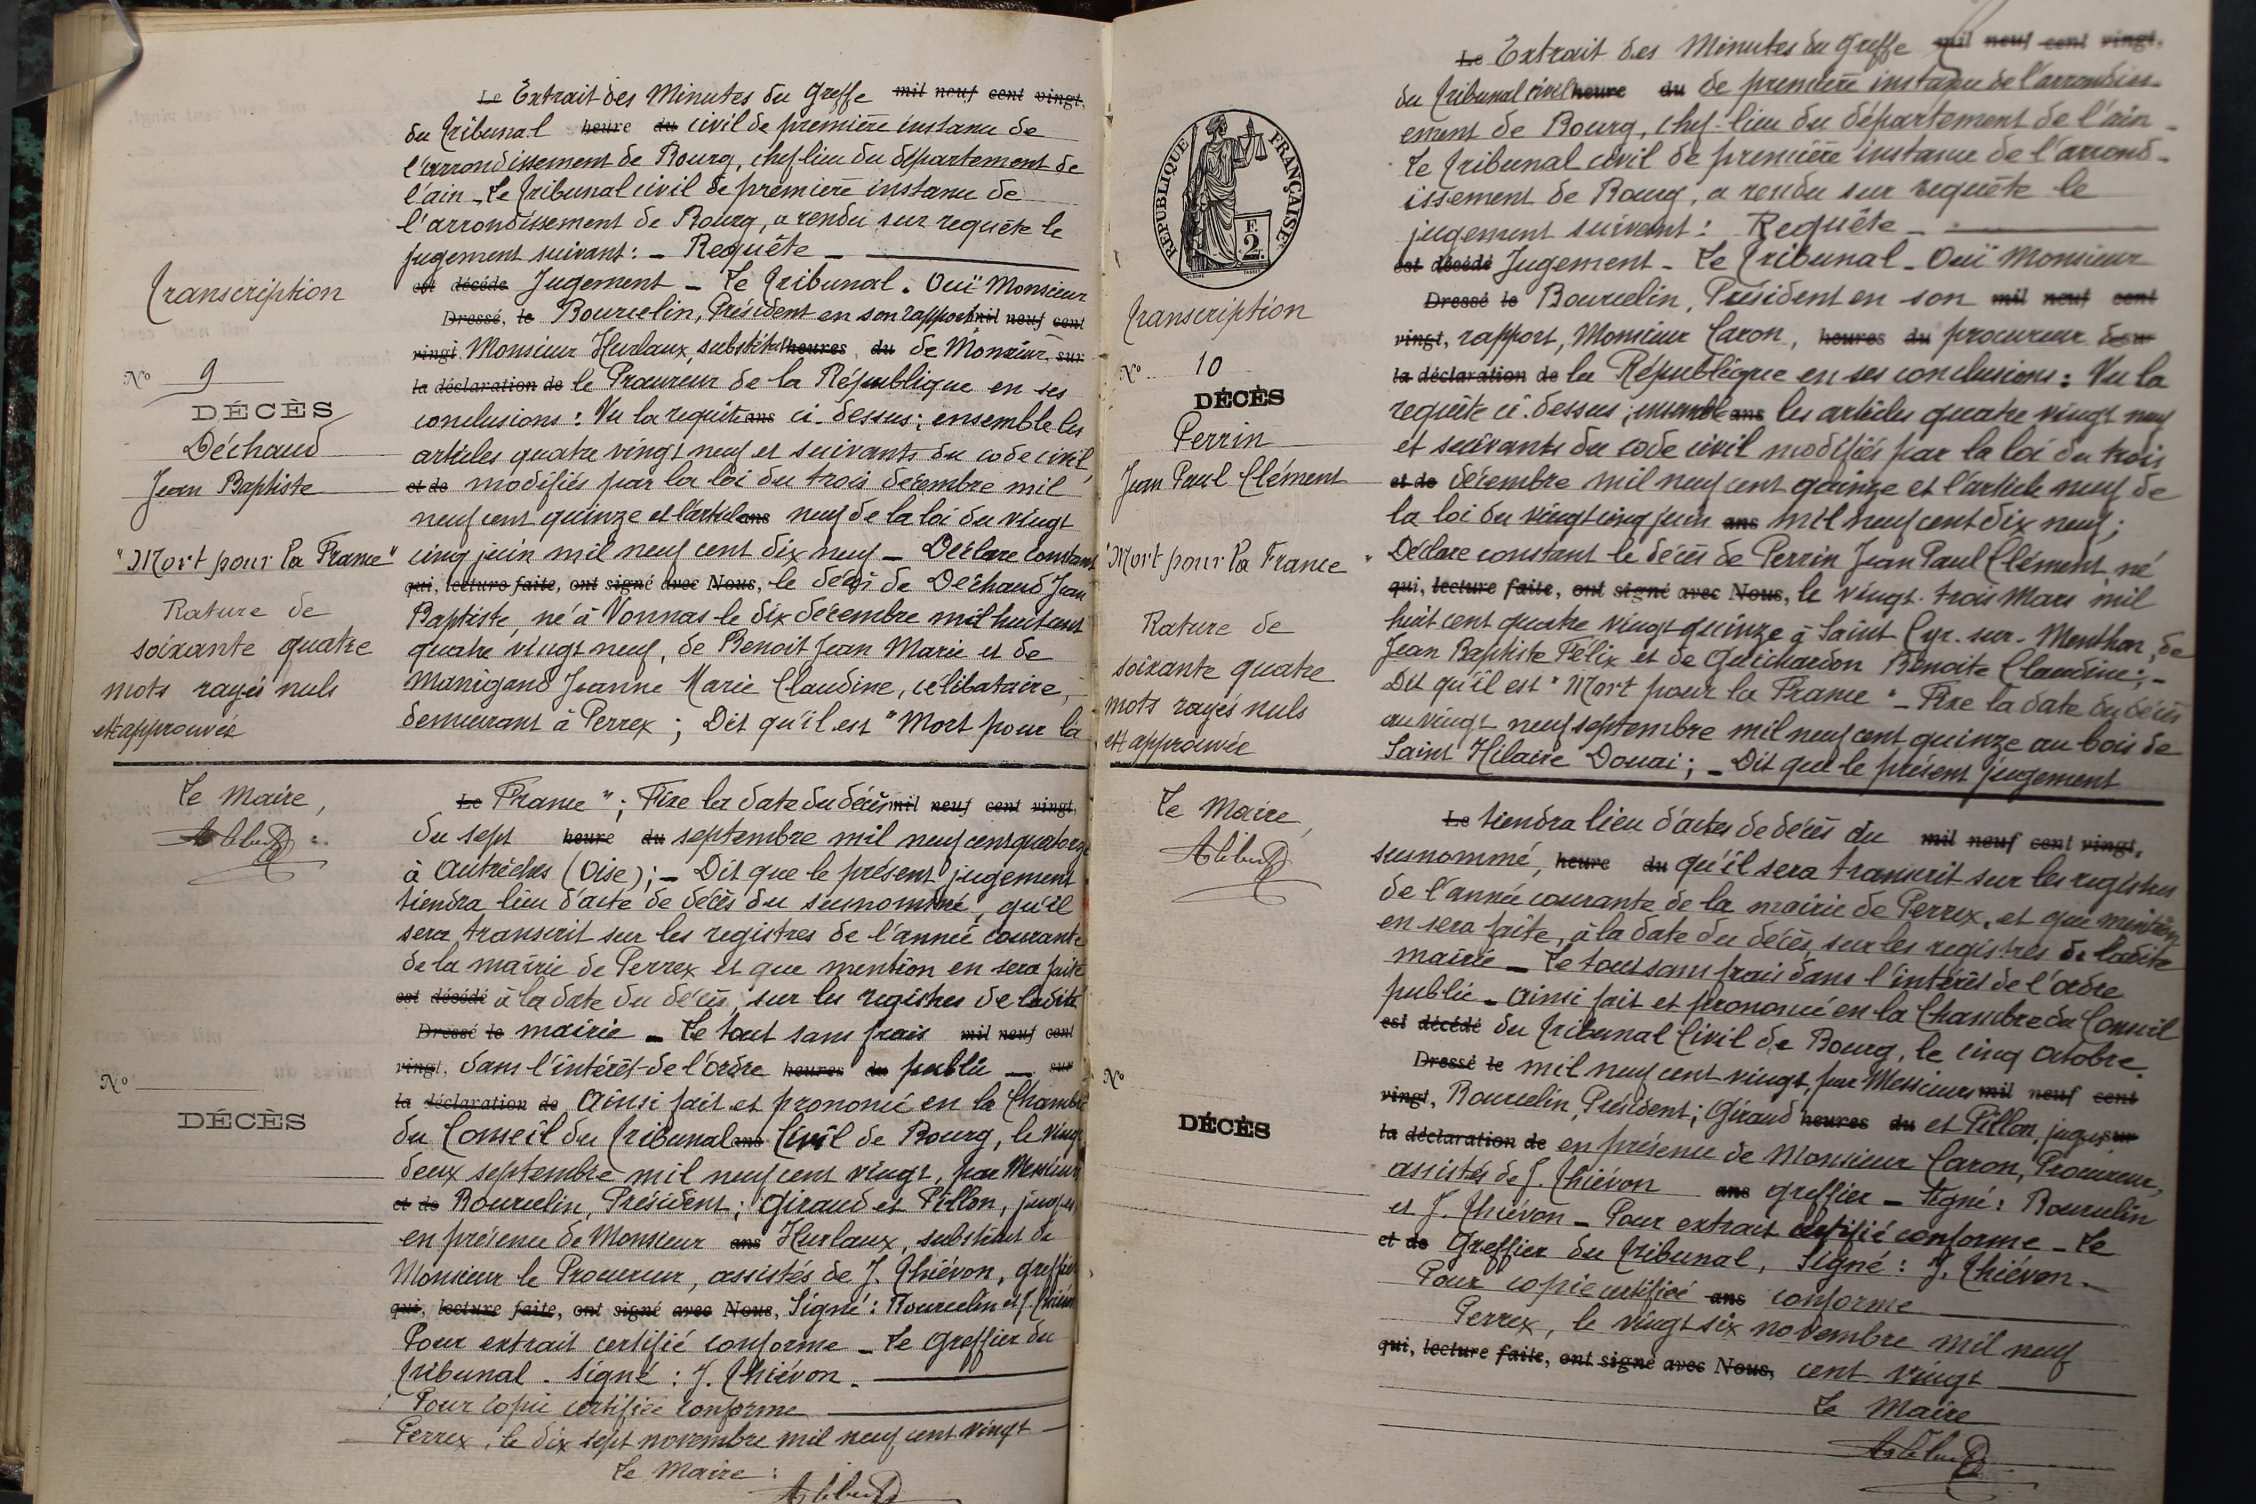 Transcription
N° 9
DÉCÈS
Déchaud
Jean Baptiste
"Mort pour la France"
Rature de
soixante quatre
mots rayés nuls
et approuvée
Le Maire,
N°
DÉCÈS
Le Extrait des Minutes du Greffe mil neuf cent vingt,
du Tribunal heure du civil de première instance de
l'arrondissement de Bourg, chef lieu du département de
l'ain - Le Tribunal civil de première instance de
l'arrondissement de Bourg, a rendu sur requête le
jugement suivant : - Requête -
est décédé Jugement - Le Tribunal . Ouï Monsieur
Dressé, le Bourcelin, Président en son rapport mil neuf cent
vingt, Monsieur Hurlaux, substitut heures du de Monsieur sur
la déclaration de le Procureur de la République en ses
conclusions : Vu la requête ans ci-dessus ; ensemble les
articles quatre vingt neuf et suivants du code civil,
et de modifiés par la loi du trois décembre mil
neuf cent quinze et l'article ans neuf de la loi du vingt
cinq juin mil neuf cent dix neuf - Déclare constant
qui, lecture faite, ont signé avec Nous, le décès de Déchaud Jean
Baptiste, né à Vonnas le dix décembre mil huit cent
quatre vingt neuf, de Benoit Jean Marie et de
Manigand Jeanne Marie Claudine, célibataire,
demeurant à Perrex ; Dit qu'il est "Mort pour la
Le France" ; Fixe la date du décès mil neuf cent vingt,
du sept heure du septembre mil neuf cent quatorze
à Autrêches (Oise) ; - Dit que le présent jugement
tiendra lieu d'acte de décès du susnommé, qu'il
sera transcrit sur les registres de l'année courante
de la mairie de Perrex et que mention en sera faite
est décédé à la date du décès, sur les registres de ladite
Dressé le mairie - Le tout sans frais mil neuf cent
vingt, dans l'intérêt de l'ordre heures du public - sur
la déclaration de Ainsi fait et prononcé en la Chambre
du Conseil du Tribunal ans Civil de Bourg, le vingt
deux septembre mil neuf cent vingt, par Messieurs
et de Bourcelin, Président ; Giraud et Pillon, juges,
en présence de Monsieur ans Hurlaux, substitut de
Monsieur le Procureur, assistés de J. Thiévon, greffier
qui, lecture faite, ont signé avec Nous, Signé : Bourcelin et J. Thiévon
Pour extrait certifié conforme - Le Greffier du
Tribunal - Signé : J. Thiévon -
Pour copie certifiée conforme
Perrex, le dix sept novembre mil neuf cent vingt
Le Maire :
RÉPUBLIQUE FRANÇAISE
2 F.
Transcription
N° 10
DÉCÈS
Perrin
Jean Paul Clément
"Mort pour la France"
Rature de
soixante quatre
mots rayés nuls
et approuvée
Le Maire,
N°
DÉCÈS
Le Extrait des Minutes du Greffe mil neuf cent vingt,
du Tribunal civil heure du de première instance de l'arrondiss-
ement de Bourg, chef-lieu du département de l'ain -
Le Tribunal civil de première instance de l'arrond-
issement de Bourg, a rendu sur requête le
jugement suivant : Requête -
est décédé Jugement - Le Tribunal - Ouï Monsieur
Dressé le Bourcelin, Président en son mil neuf cent
vingt, rapport, Monsieur Caron, heures du procureur de sur
la déclaration de la République en ses conclusions : Vu la
requête ci-dessus ; ensemble ans les articles quatre vingt neuf
et suivants du code civil modifiés par la loi du trois
et de décembre mil neuf cent quinze et l'article neuf de
la loi du vingt cinq juin ans mil neuf cent dix neuf ;
Déclare constant le décès de Perrin Jean Paul Clément, né
qui, lecture faite, ont signé avec Nous, le vingt-trois Mars mil
huit cent quatre vingt quinze à Saint Cyr-sur-Menthon, de
Jean Baptiste Félix et de Guichardon Benoite Claudine ; -
Dit qu'il est "Mort pour la France" - Fixe la date du décès
au vingt neuf septembre mil neuf cent quinze au bois de
Saint Hilaire Douai ; - Dit que le présent jugement
Le tiendra lieu d'actes de décès du mil neuf cent vingt,
susnommé, heure du qu'il sera transcrit sur les registres
de l'année courante de la mairie de Perrex, et que mention
en sera faite, à la date du décès, sur les registres de ladite
mairie - Le tout sans frais dans l'intérêt de l'ordre
public - Ainsi fait et prononcé en la Chambre du Conseil
est décédé du Tribunal Civil de Bourg, le cinq Octobre
Dressé le mil neuf cent vingt, par Messieurs mil neuf cent
vingt, Bourcelin, Président ; Giraud heures du et Pillon, juges sur
la déclaration de en présence de Monsieur Caron, Procureur,
assistés de J. Thiévon ans greffier - Signé : Bourcelin
et J. Thiévon - Pour extrait certifié conforme - Le
et de Greffier du Tribunal, Signé : J. Thiévon -
Pour copie certifiée ans conforme
Perrex, le vingt six novembre mil neuf
qui, lecture faite, ont signé avec Nous, cent vingt
Le Maire